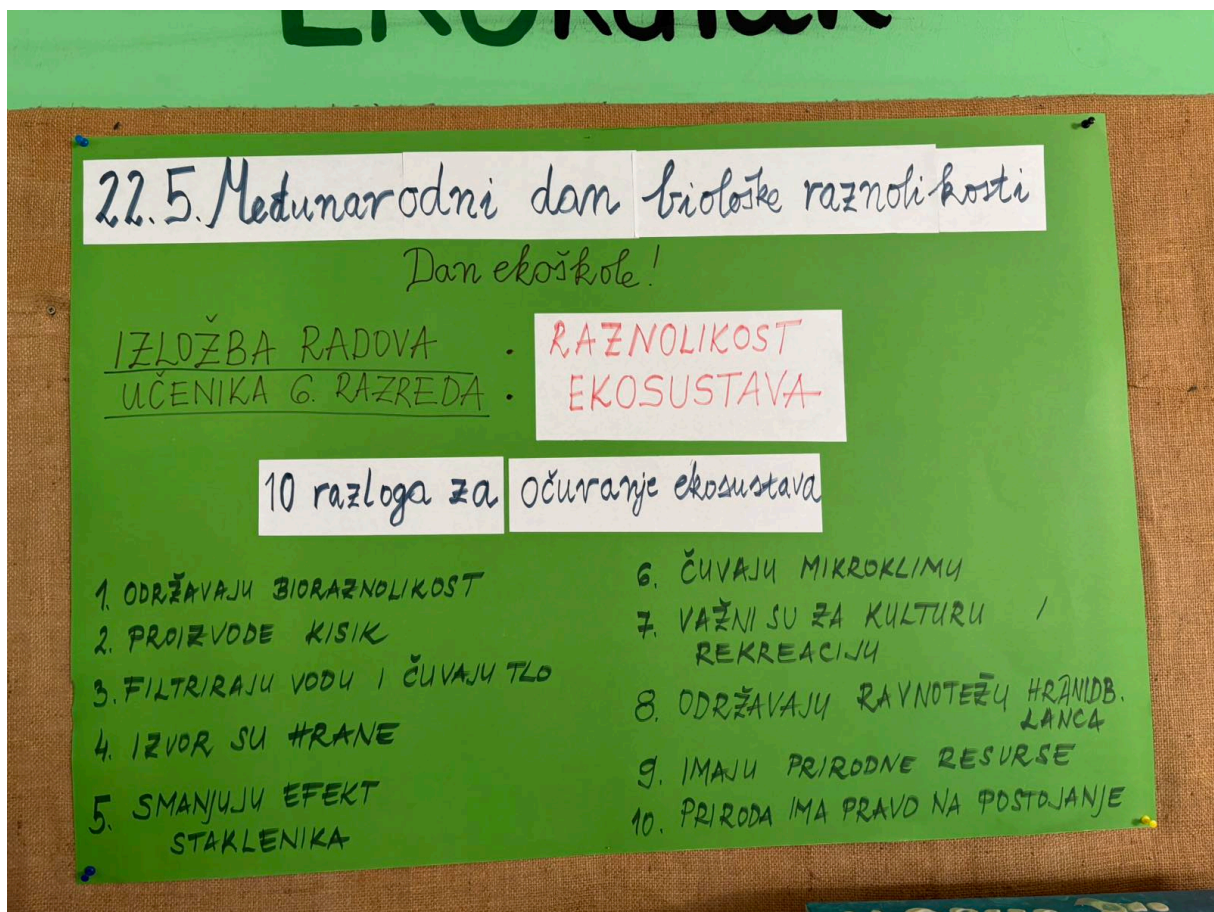 EKOkutak
22.5. Međunarodni dan biološke raznolikosti
Dan ekoškole!
IZLOŽBA RADOVA : RAZNOLIKOST
UČENIKA 6. RAZREDA EKOSUSTAVA
10 razloga za očuvanje ekosustava
1. ODRŽAVAJU BIORAZNOLIKOST
2. PROIZVODE KISIK
3. FILTRIRAJU VODU I ČUVAJU TLO
4. IZVOR SU HRANE
5. SMANJUJU EFEKT
STAKLENIKA
6. ČUVAJU MIKROKLIMU
7. VAŽNI SU ZA KULTURU I
REKREACIJU
8. ODRŽAVAJU RAVNOTEŽU HRANIDB.
LANCA
9. IMAJU PRIRODNE RESURSE
10. PRIRODA IMA PRAVO NA POSTOJANJE